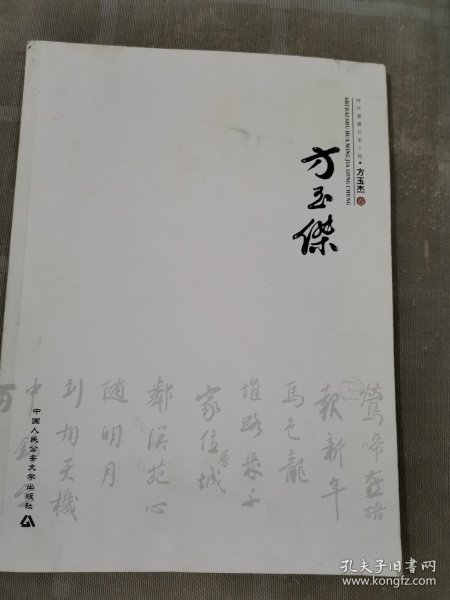 时代书画名家工程·方玉杰 卷
SHI DAI SHU HUA MING JIA GONG CHENG
方玉傑
鶯啼燕語
報新年
馬邑龍
堆路幾千
家住層城
鄰漢苑心
隨明月
到胡天機
中錦
中国人民公安大学出版社
孔夫子旧书网
www.kongfz.com